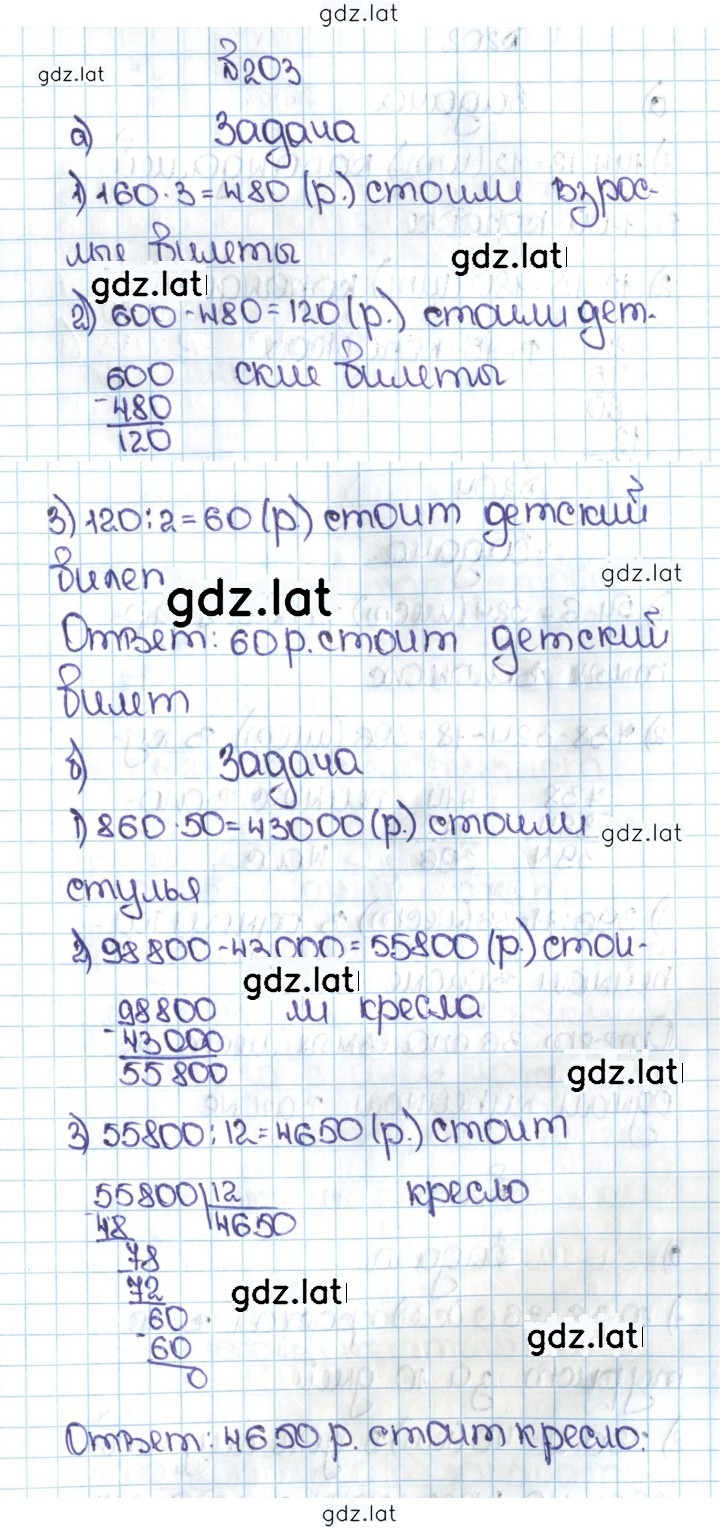 gdz.lat
gdz.lat
№203
а) Задача
1) 160·3=480 (р.) стоили взрос-
лые билеты
gdz.lat
gdz.lat
2) 600-480=120 (р.) стоили дет-
600 ские билеты
-480
120
3) 120:2=60 (р.) стоит детский
билет
gdz.lat
gdz.lat
Ответ: 60 р. стоит детский
билет
б) Задача
1) 860·50=43000 (р.) стоили
gdz.lat
стулья
2) 98800-43000=55800 (р.) стои-
gdz.lat
98800 ли кресла
-43000
55800
gdz.lat
3) 55800:12=4650 (р.) стоит
55800 12 кресло
-48 4650
78
72
gdz.lat
60
-60
gdz.lat
0
Ответ: 4650 р. стоит кресло.
gdz.lat